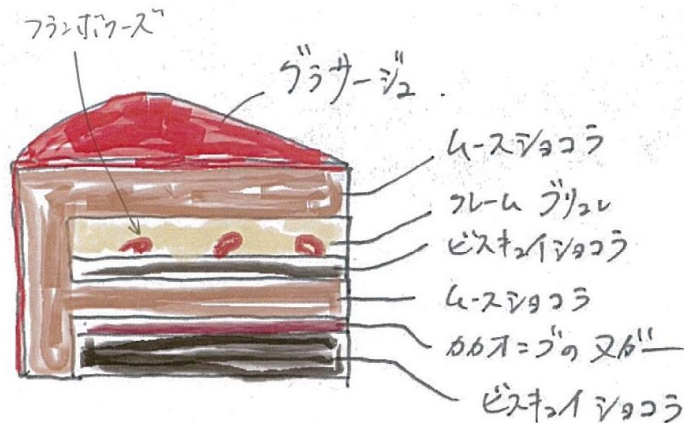 フランボワーズ
グラサージュ.
ムースショコラ
クレーム ブリュレ
ビスキュイショコラ
ムースショコラ
カカオニブの ヌガー
ビスキュイ ショコラ